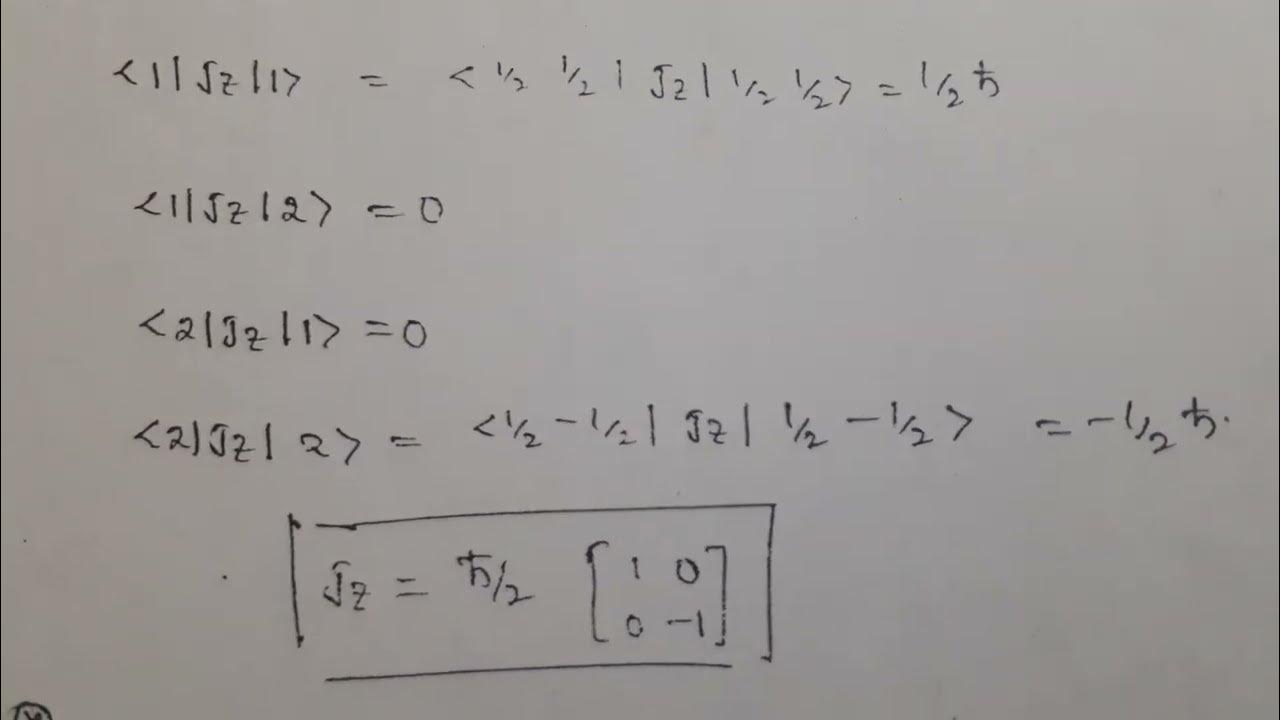 <1|Jz|1> = <1/2 1/2 | Jz | 1/2 1/2> = 1/2 ħ
<1|Jz|2> = 0
<2|Jz|1> = 0
<2|Jz|2> = <1/2 -1/2 | Jz | 1/2 -1/2> = -1/2 ħ.
Jz = ħ/2 [1 0
0 -1]